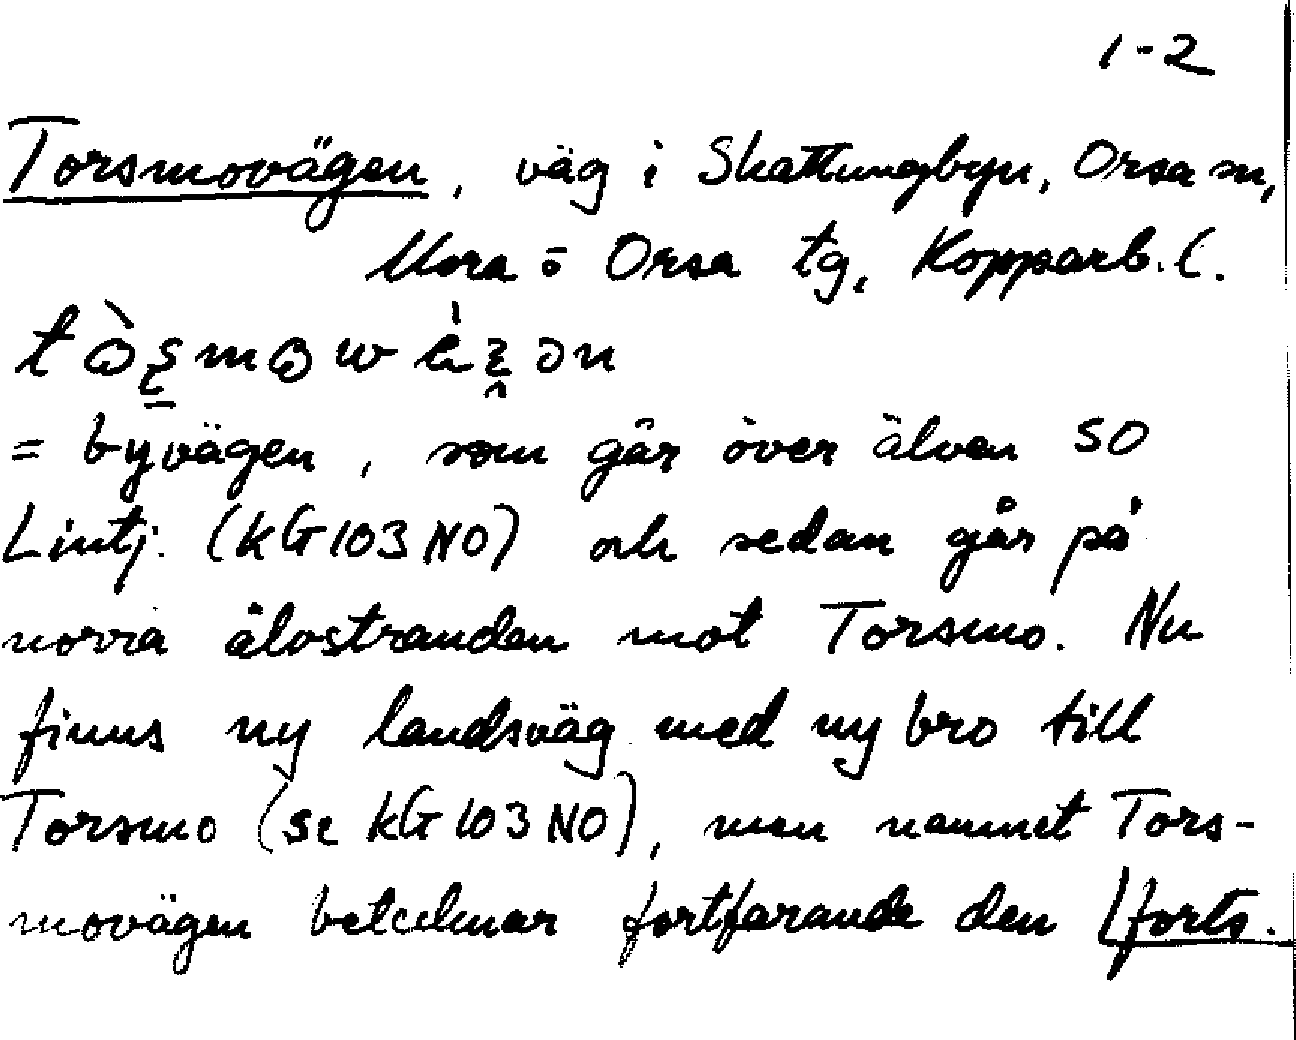 1-2
Torsmovägen, väg i Skattungbyn, Orsa sn,
Mora o Orsa tg, Kopparb. l.
= byvägen, som går över älven SO
Lintj. (kG103NO) och sedan går på
norra älvstranden mot Torsmo. Nu
finns ny landsväg med ny bro till
Torsmo (se kG103NO), men namnet Tors-
movägen betecknar fortfarande den forts.